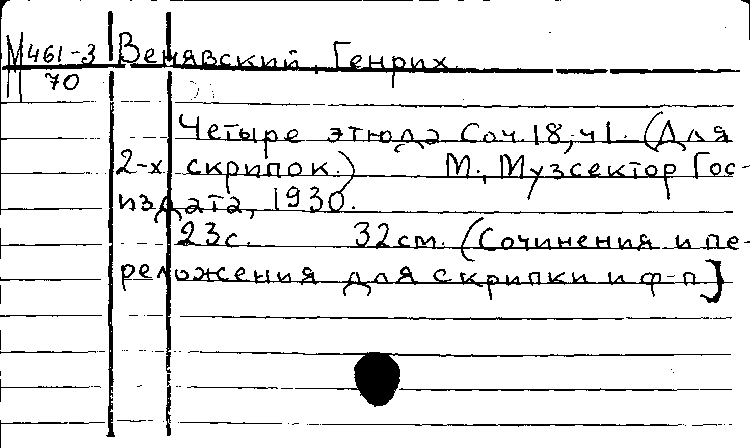 М461-3 Венявский, Генрих.
70
Четыре этюда Соч.18, ч1. (Для
2-х скрипок.) М., Музсектор Гос-
издата, 1930.
23с. 32см. (Сочинения и пе-
реложения для скрипки и ф-п]